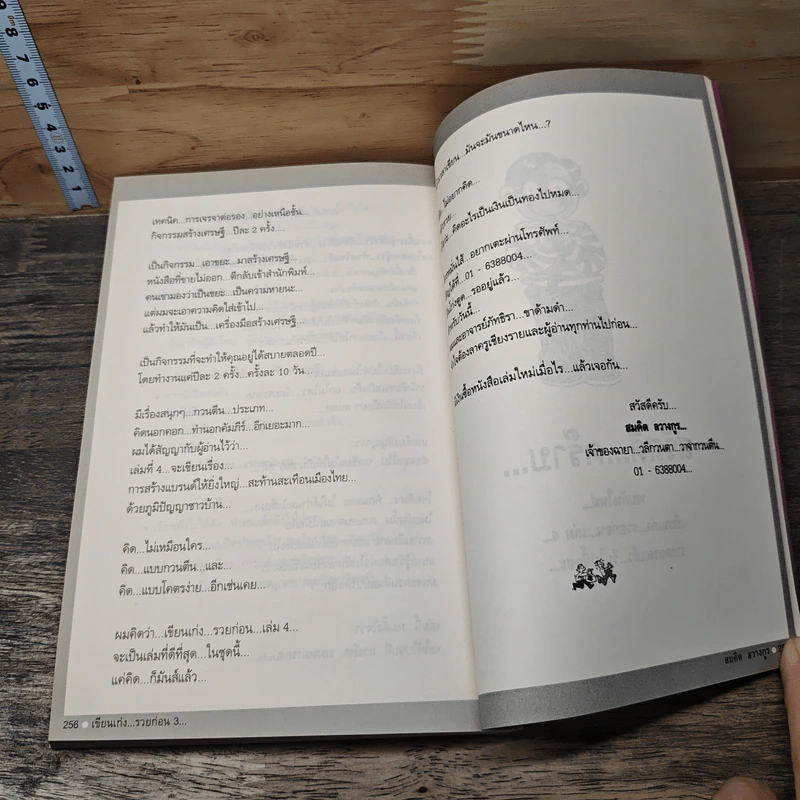 เทคนิค...การเจรจาต่อรอง...อย่างเหนือชั้น...
กิจกรรมสร้างเศรษฐี...ปีละ 2 ครั้ง....
เป็นกิจกรรม...เอาขยะ...มาสร้างเศรษฐี...
หนังสือที่ขายไม่ออก...ตีกลับเข้าสำนักพิมพ์...
คนเขามองว่าเป็นขยะ...เป็นความหายนะ...
แต่ผมจะเอาความคิดใส่เข้าไป...
แล้วทำให้มันเป็น...เครื่องมือสร้างเศรษฐี...
เป็นกิจกรรมที่จะทำให้คุณอยู่ได้สบายตลอดปี...
โดยทำงานแค่ปีละ 2 ครั้ง...ครั้งละ 10 วัน...
มีเรื่องสนุกๆ...กวนตีน...ประเภท...
คิดนอกคอก...ทำนอกคัมภีร์...อีกเยอะมาก...
ผมได้สัญญากับผู้อ่านไว้ว่า...
เล่มที่ 4...จะเขียนเรื่อง...
การสร้างแบรนด์ให้ยิ่งใหญ่...สะท้านสะเทือนเมืองไทย...
ด้วยภูมิปัญญาชาวบ้าน...
คิด...ไม่เหมือนใคร...
คิด...แบบกวนตีน...และ...
คิด...แบบโคตรง่าย...อีกเช่นเคย...
ผมคิดว่า...เขียนเก่ง...รวยก่อน...เล่ม 4...
จะเป็นเล่มที่ดีที่สุด...ในชุดนี้...
แค่คิด...ก็มันส์แล้ว...
256 เขียนเก่ง...รวยก่อน 3...
...มันจะมันขนาดไหน...?
ไม่อยากคิด...
คิดอะไรเป็นเงินเป็นทองไปหมด...
อยากเตะผ่านโทรศัพท์...
01 - 6388004...
รออยู่แล้ว...
วันนี้...
และอาจารย์ภัทธิรา...ชาด้ามดำ...
ต้องลาครูเชียงรายและผู้อ่านทุกท่านไปก่อน...
ซื้อหนังสือเล่มใหม่เมื่อไร...แล้วเจอกัน...
สวัสดีครับ...
สมคิด ลวางกูร...
เจ้าของฉายา...วลีกวนตา...วาจากวนตีน...
01 - 6388004...
สมคิด ลวางกูร